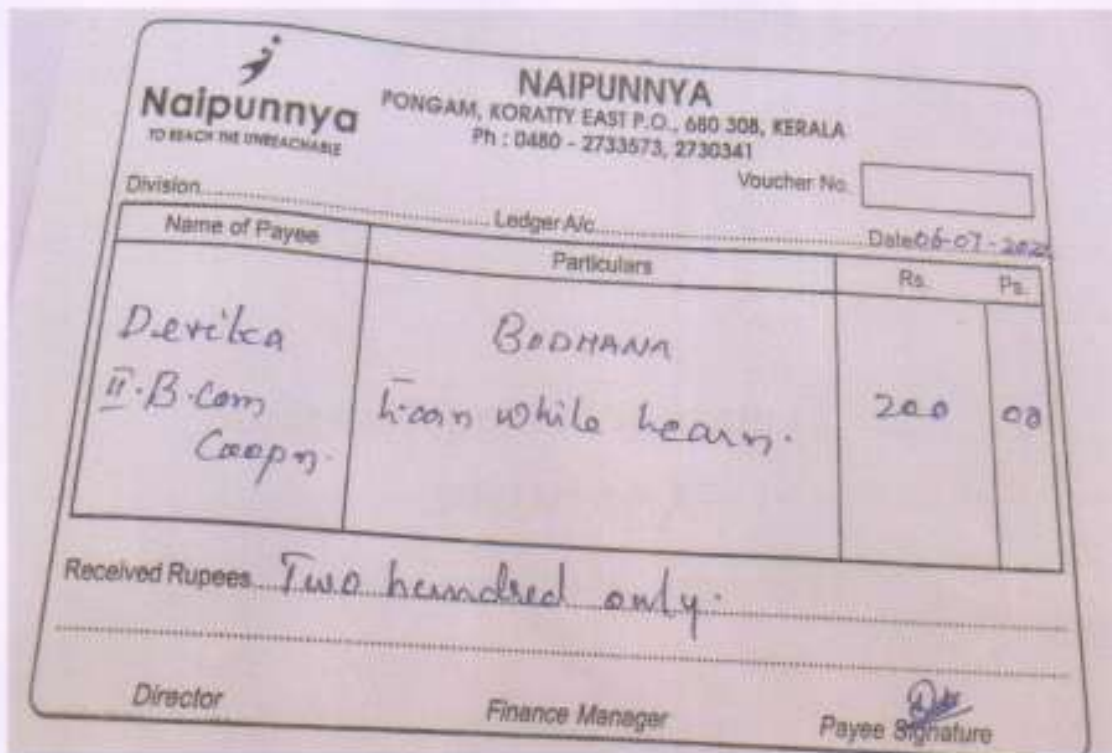 Naipunnya
TO REACH THE UNREACHABLE
NAIPUNNYA
PONGAM, KORATTY EAST P.O., 680 308, KERALA
Ph : 0480 - 2733573, 2730341
Voucher No.
Division Ledger A/c Date 06-07-
Name of Payee Particulars Rs. Ps.
Devika BODHANA
II. B.Com while 200 00
Coopn.
Received Rupees Two hundred only.
Director Finance Manager Payee Signature